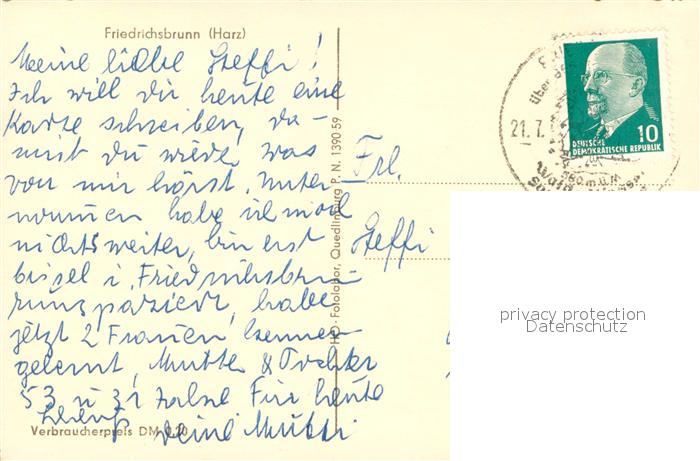 Friedrichsbrunn (Harz)
Meine liebe Steffi!
Ich will dir heute eine
Karte schreiben, da-
mit du wieder was
von mir hörst. Unter-
nommen habe ich noch
nichts weiter, bin erst
bissel i. Friedrichsbru-
n spaziert, habe
jetzt 2 Frauen kennen-
gelernt, Mutter & Tochter
53 u 31 Jahre Für heute
deine Mutti
Verbraucherpreis DM 0,20
HO-Fotolabor, Quedlinburg P. N. 1390 59
Frl.
Steffi
21. 7.
10
DEUTSCHE
DEMOKRATISCHE REPUBLIK
privacy protection
Datenschutz